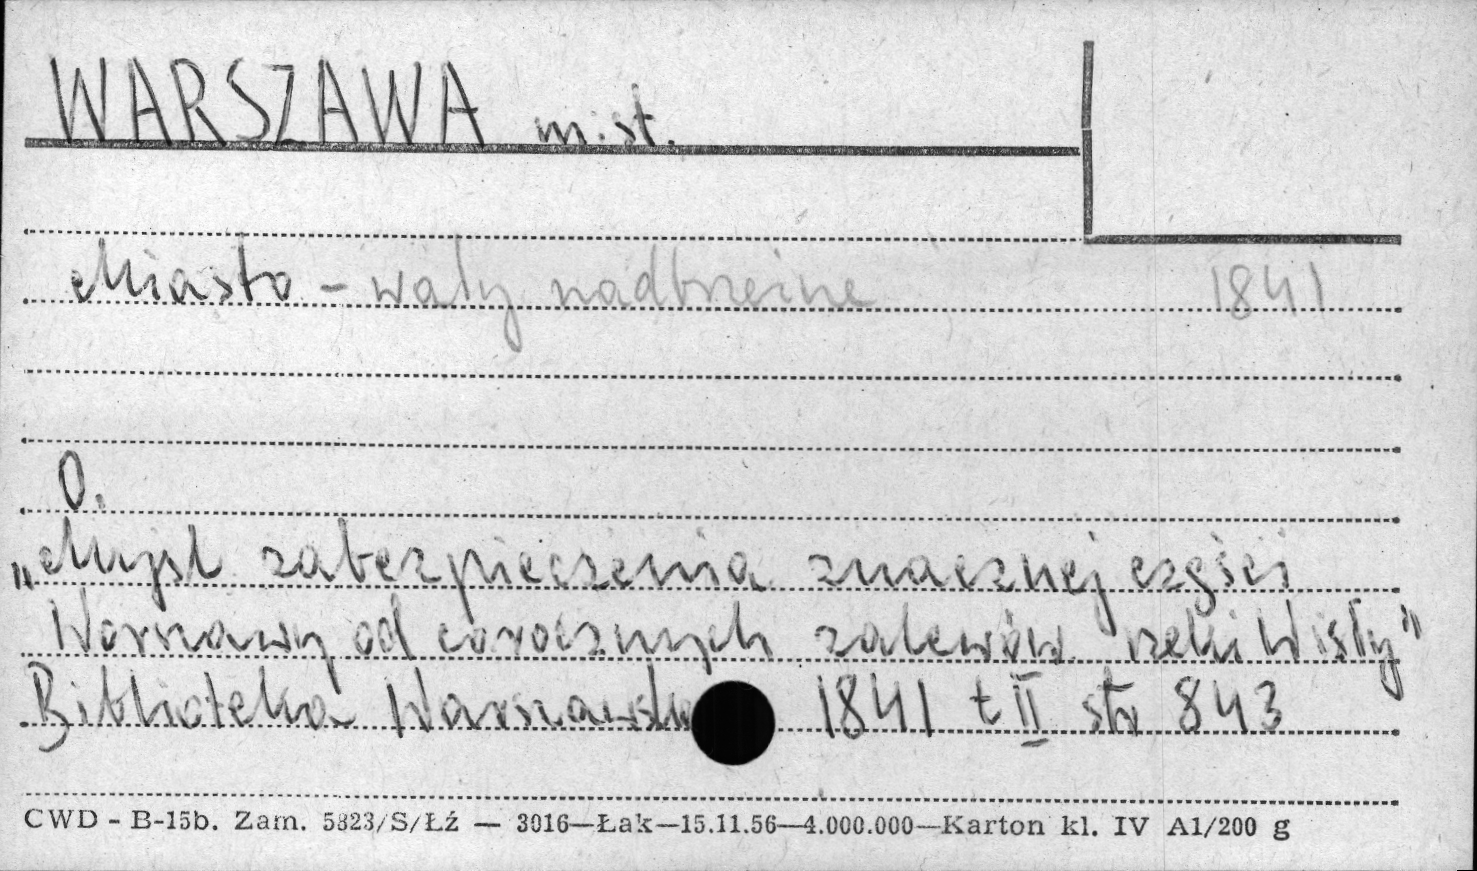 WARSZAWA m.st.
Miasto - wały nadbrzeżne 1841
O.
„Myśl zabezpieczenia znacznej części
Warszawy od corocznych zalewów rzeki Wisły"
Biblioteka Warszawska 1841 t II str 843
CWD - B-15b. Zam. 5823/S/Łź — 3016—Łak—15.11.56—4.000.000—Karton kl. IV A1/200 g